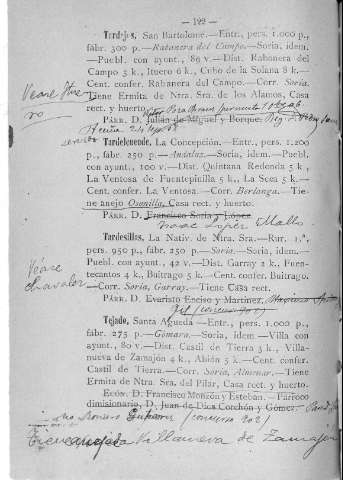 — 122 —
Tardejos, San Bartolomé.—Entr., pers. 1.000 p.,
fábr. 300 p.—Rabanera del Campo.—Soria, idem.
—Puebl. con ayunt., 89 v.—Dist. Rabanera del
Campo 3 k., Ituero 6 k., Cubo de la Solana 8 k.—
Cent. confer. Rabanera del Campo.—Corr. Soria.
Tiene Ermita de Ntra. Sra. de los Alamos, Casa
rect. y huerto.
Véase Itue
ro
Párr. D. Julián de Miguel y Borque.
Tardelcuende, La Concepción.—Entr., pers. 1.200
p., fábr. 250 p.—Andaluz.—Soria, idem.—Puebl.
con ayunt., 100 v.—Dist. Quintana Redonda 5 k.,
La Ventosa de Fuentepinilla 5 k., La Seca 5 k.—
Cent. confer. La Ventosa.—Corr. Berlanga.—Tie-
ne anejo Osonilla, Casa rect. y huerto.
Párr. D. Francisco Soria y López
Isaac López Mallo
Tardesillas, La Nativ. de Ntra. Sra.—Rur. 1.ª,
pers. 950 p., fábr. 250 p.—Soria.—Soria, idem.—
Puebl. con ayunt., 42 v.—Dist. Garray 2 k., Fuen-
tecantos 4 k., Buitrago 5 k.—Cent. confer. Buitrago.
—Corr. Soria, Garray.—Tiene Casa rect.
Véase
Chavaler
Párr. D. Evaristo Enciso y Martínez,
Gil (concurso 902)
Tejado, Santa Agueda—Entr., pers. 1.000 p.,
fábr. 275 p.—Gómara.—Soria, idem—Villa con
ayunt., 80 v.—Dist. Castil de Tierra 3 k., Villa-
nueva de Zamajón 4 k., Abión 5 k.—Cent. confer.
Castil de Tierra.—Corr. Soria, Almenar.—Tiene
Ermita de Ntra. Sra. del Pilar, Casa rect. y huerto.
Ecón. D. Francisco Monzón y Esteban.—Párroco
dimisionario, D. Juan de Dios Corchón y Gómez.
(concurso 902)
Tiene anejo a Villanueva de Zamajón